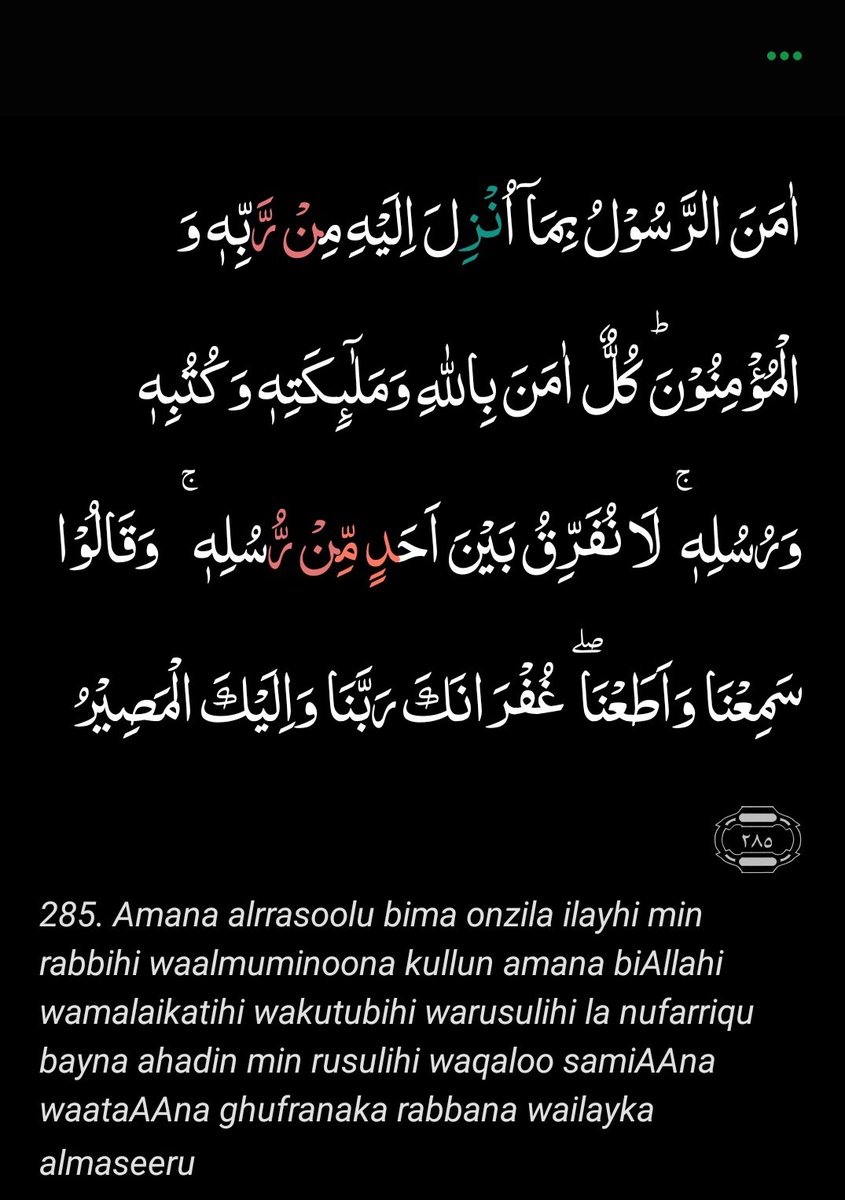 اٰمَنَ الرَّسُوۡلُ بِمَاۤ اُنۡزِلَ اِلَيۡهِ مِنۡ رَّبِّهٖ وَ
الۡمُؤۡمِنُوۡنَ‌ؕ كُلٌّ اٰمَنَ بِاللّٰهِ وَمَلٰٓٮِٕكَتِهٖ وَكُتُبِهٖ
وَرُسُلِهٖ‌ۚ لَا نُفَرِّقُ بَيۡنَ اَحَدٍ مِّنۡ رُّسُلِهٖ‌ۚ وَقَالُوۡا
سَمِعۡنَا وَاَطَعۡنَا‌ۖ غُفۡرَانَكَ رَبَّنَا وَاِلَيۡكَ الۡمَصِيۡرُ
٢٨٥
285. Amana alrrasoolu bima onzila ilayhi min
rabbihi waalmuminoona kullun amana biAllahi
wamalaikatihi wakutubihi warusulihi la nufarriqu
bayna ahadin min rusulihi waqaloo samiAAna
waataAAna ghufranaka rabbana wailayka
almaseeru